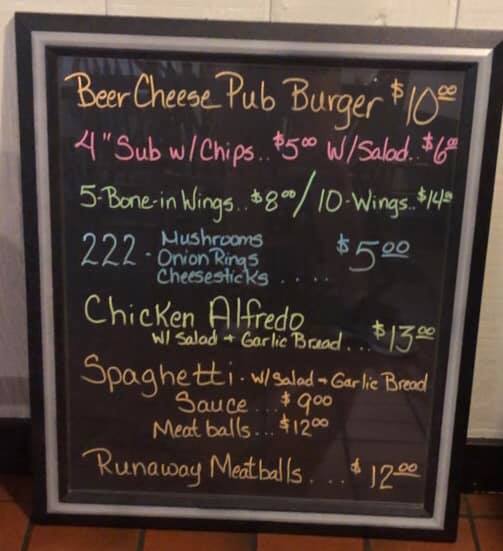 Beer Cheese Pub Burger $10.00
4" Sub w/Chips.. $5.00 w/Salad.. $6.00
5-Bone-in Wings.. $8.00/10-Wings.. $14.00
222 - Mushrooms
Onion Rings $5.00
Cheesesticks . . . .
Chicken Alfredo
w/ Salad + Garlic Bread... $13.00
Spaghetti - w/Salad + Garlic Bread
Sauce ... $9.00
Meatballs ... $12.00
Runaway Meatballs . . . $12.00